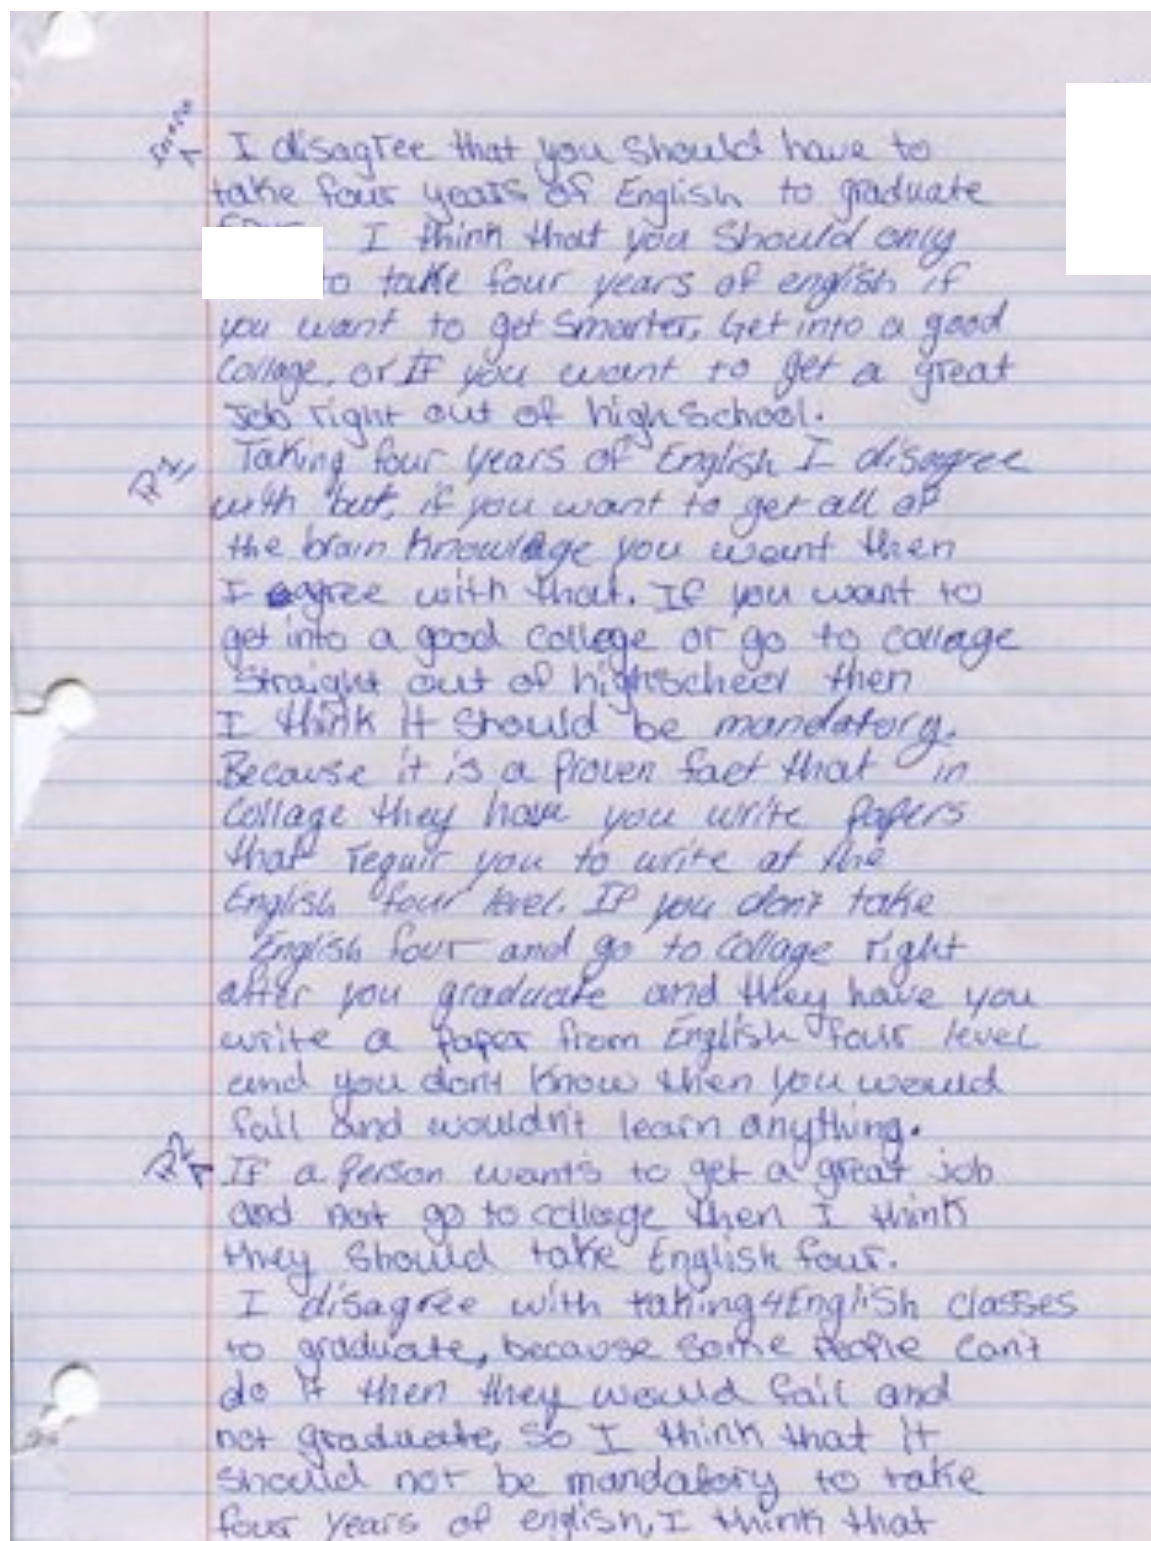 I disagree that you should have to
take four years of English to graduate
I think that you should only
to take four years of english if
you want to get smarter, Get into a good
Collage, or If you want to get a great
Job right out of highschool.
P1
Taking four years of English I disagree
with but, if you want to get all of
the brain knowledge you want then
I agree with that. If you want to
get into a good college or go to collage
straight out of highschool then
I think it should be mandatory.
Because it is a proven fact that in
Collage they have you write papers
that requir you to write at the
English four level. If you don't take
English four and go to Collage right
after you graduate and they have you
write a paper from English four level
and you don't know then you would
fail and wouldn't learn anything.
P2
If a person wants to get a great job
and not go to college then I think
they should take English four.
I disagree with taking 4 English classes
to graduate, because some people can't
do it then they would fail and
not graduate, so I think that it
should not be mandatory to take
four years of english, I think that